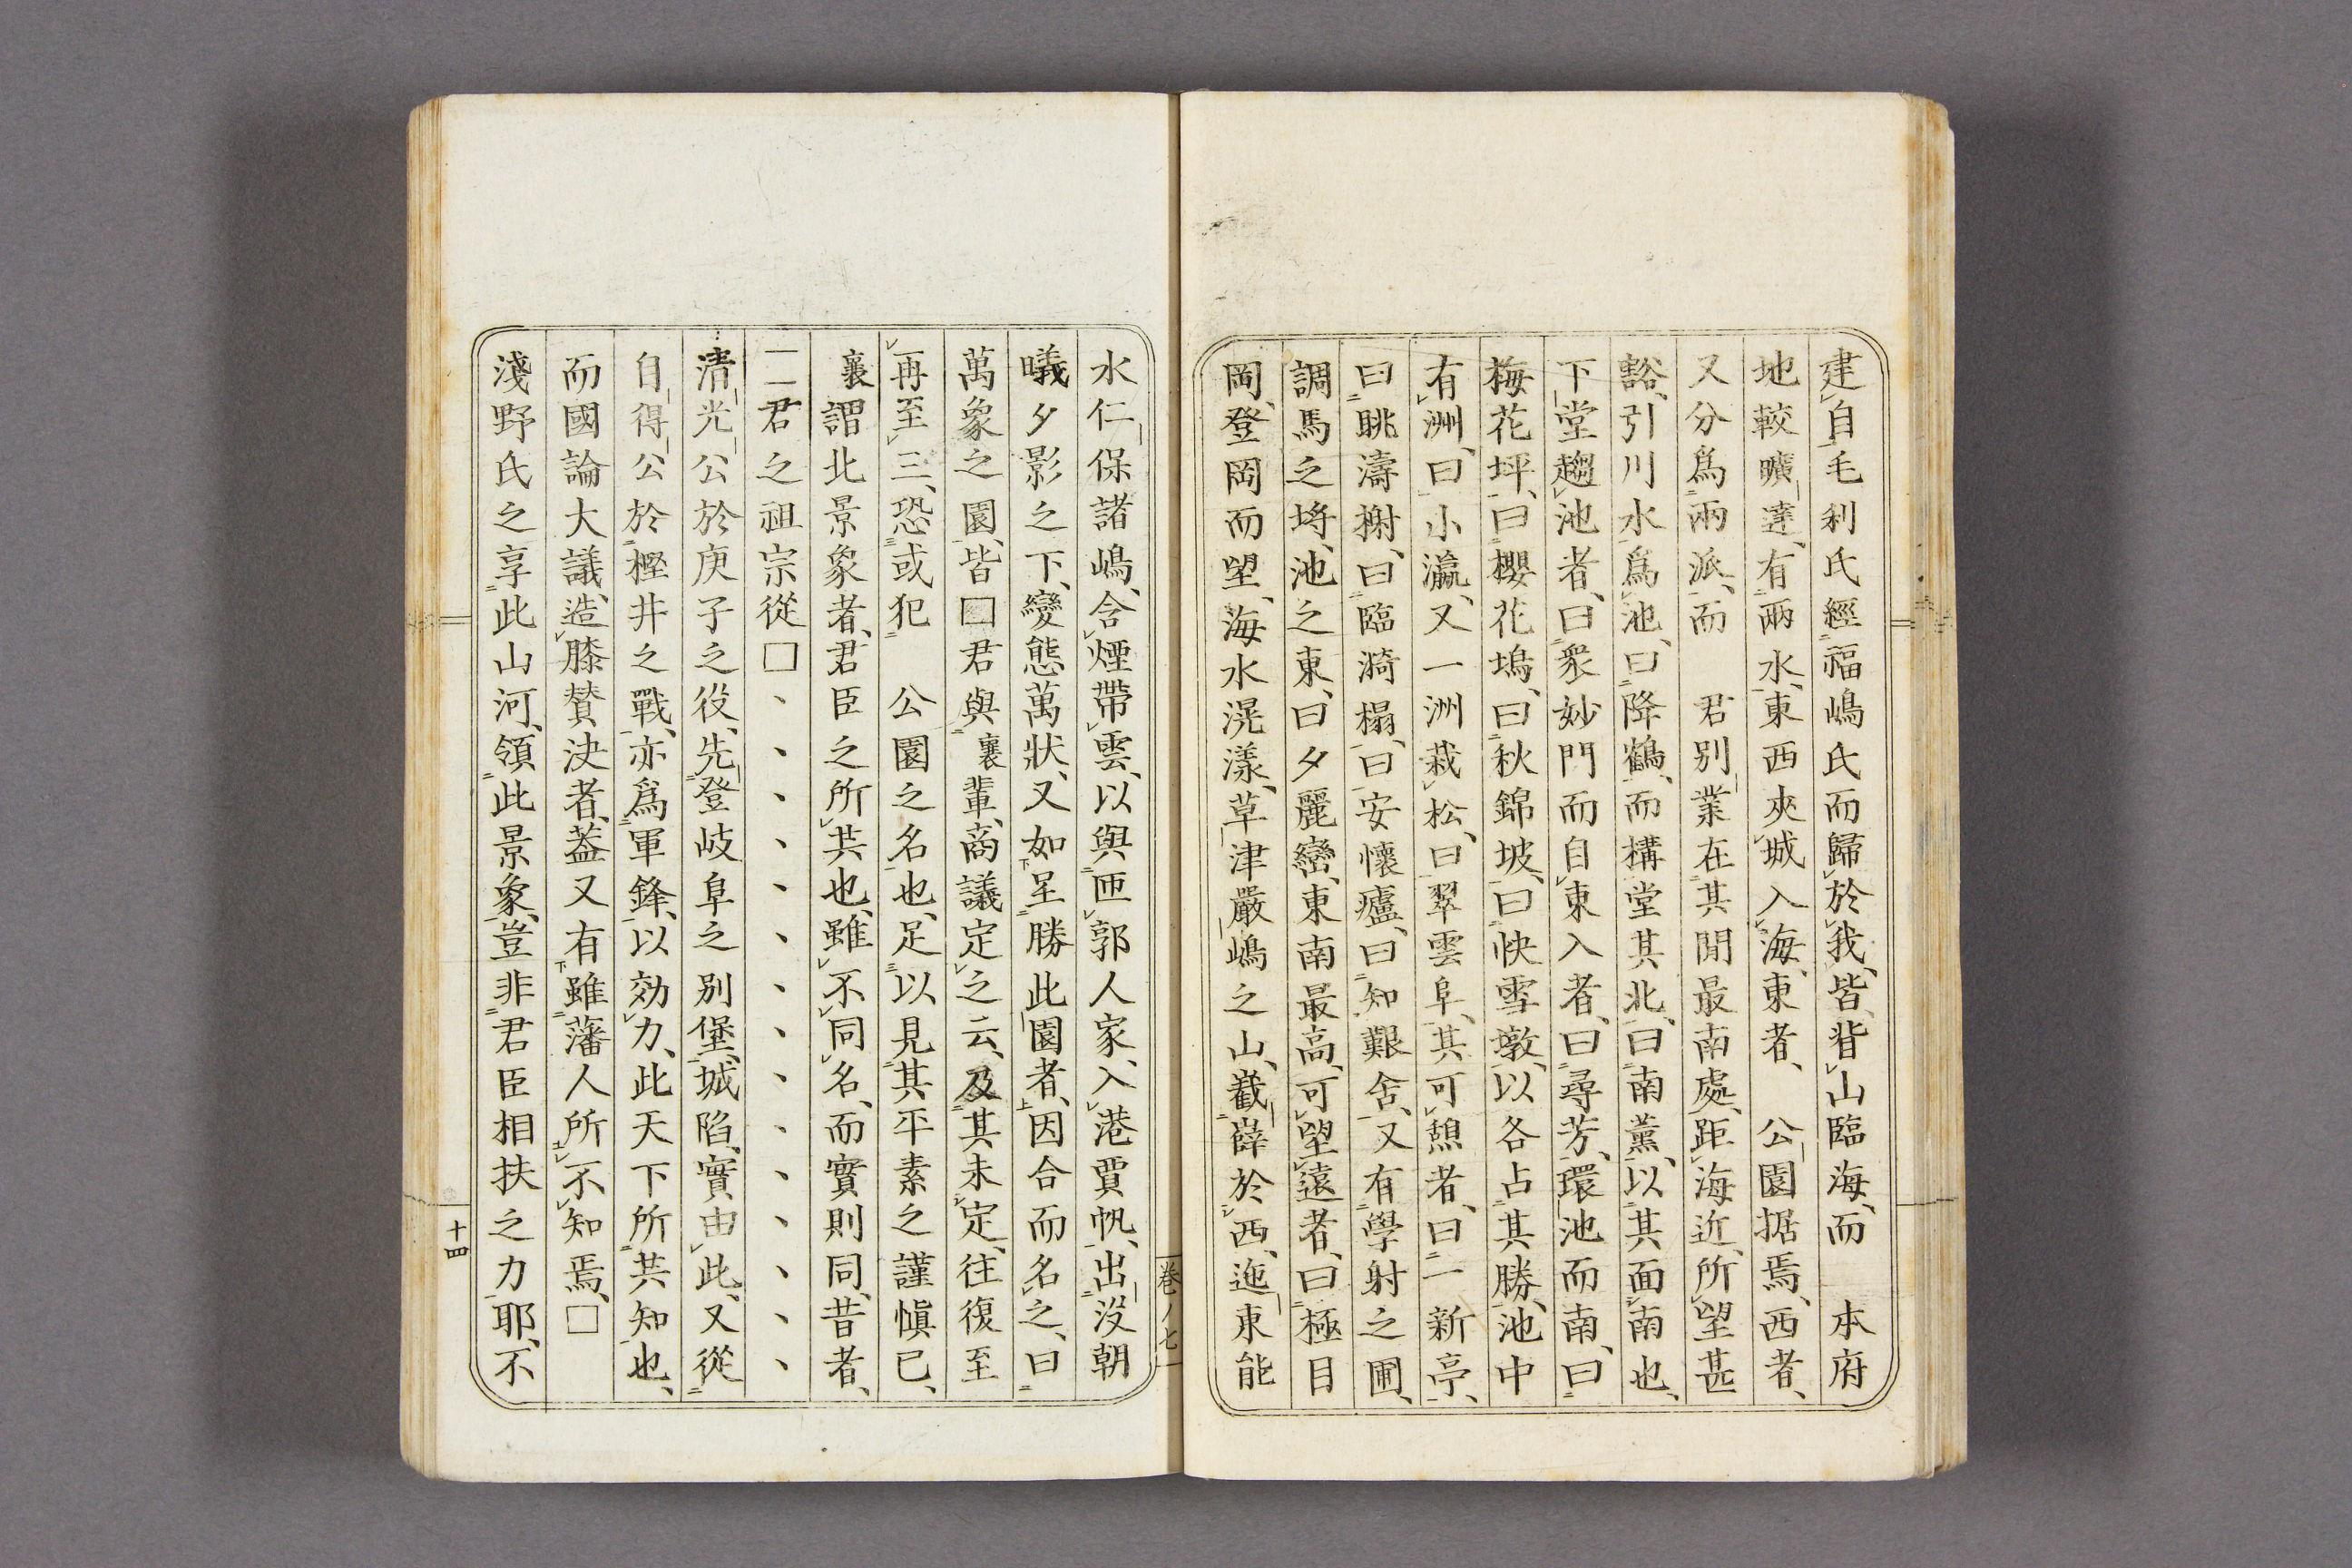 建自毛利氏經福嶋氏而歸於我、皆、背山臨海、而　本府
地較曠達、有兩水、東西夾城入海、東者、　公園据焉、西者、
又分爲兩派、而　君別業在其間最南處、距海近、所望甚
豁、引川水爲池、曰降鶴、而構堂其北、曰南薰、以其面南也、
下堂趨池者、曰衆妙門而自東入者、曰尋芳、環池而南、曰
梅花坪、曰櫻花塢、曰秋錦坡、曰快雪墩、以各占其勝、池中
有洲、曰小瀛、又一洲栽松、曰翠雲阜、其可憩者、曰一新亭、
曰眺濤榭、曰臨漪榻、曰安懷廬、曰知艱舍、又有學射之圃、
調馬之埒、池之東、曰夕麗巒、東南最高、可望遠者、曰極目
岡、登岡而望、海水滉漾、草津嚴嶋之山、巀嶭於西、迤東能
水仁保諸嶋、含煙帶雲、以與匝郭人家、入港賈帆、出沒朝
曦夕影之下、變態萬狀、又如呈勝此園者、因合而名之、曰
萬象之園、皆□君與襄輩、商議定之云、及其未定、往復至
再至三、恐或犯　公園之名也、足以見其平素之謹愼已、
襄謂北景象者、君臣之所共也、雖不同名、而實則同、昔者、
二君之祖宗從□、、、、、、、、、、、、、、、
清光公於庚子之役、先登岐阜之別堡、城陷、實由此、又從
自得公於樫井之戰、亦爲軍鋒、以効力、此天下所共知也、
而國論大議、造膝賛決者、蓋又有雖藩人所不知焉、□
淺野氏之享此山河、領此景象、豈非君臣相扶之力耶、不
卷ノ七
十四